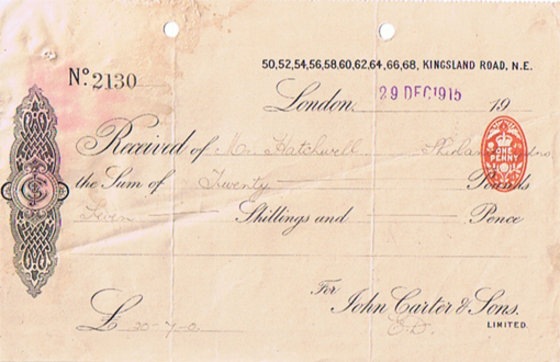 50,52,54,56,58,60,62,64,66,68, KINGSLAND ROAD, N.E.
No. 2130
London, 29 DEC 1915 19
Received of Mr Hatchwell
ONE PENNY
the Sum of Twenty Pounds
Seven Shillings and Pence
For John Carter & Sons.
LIMITED.
£ 20-7-0